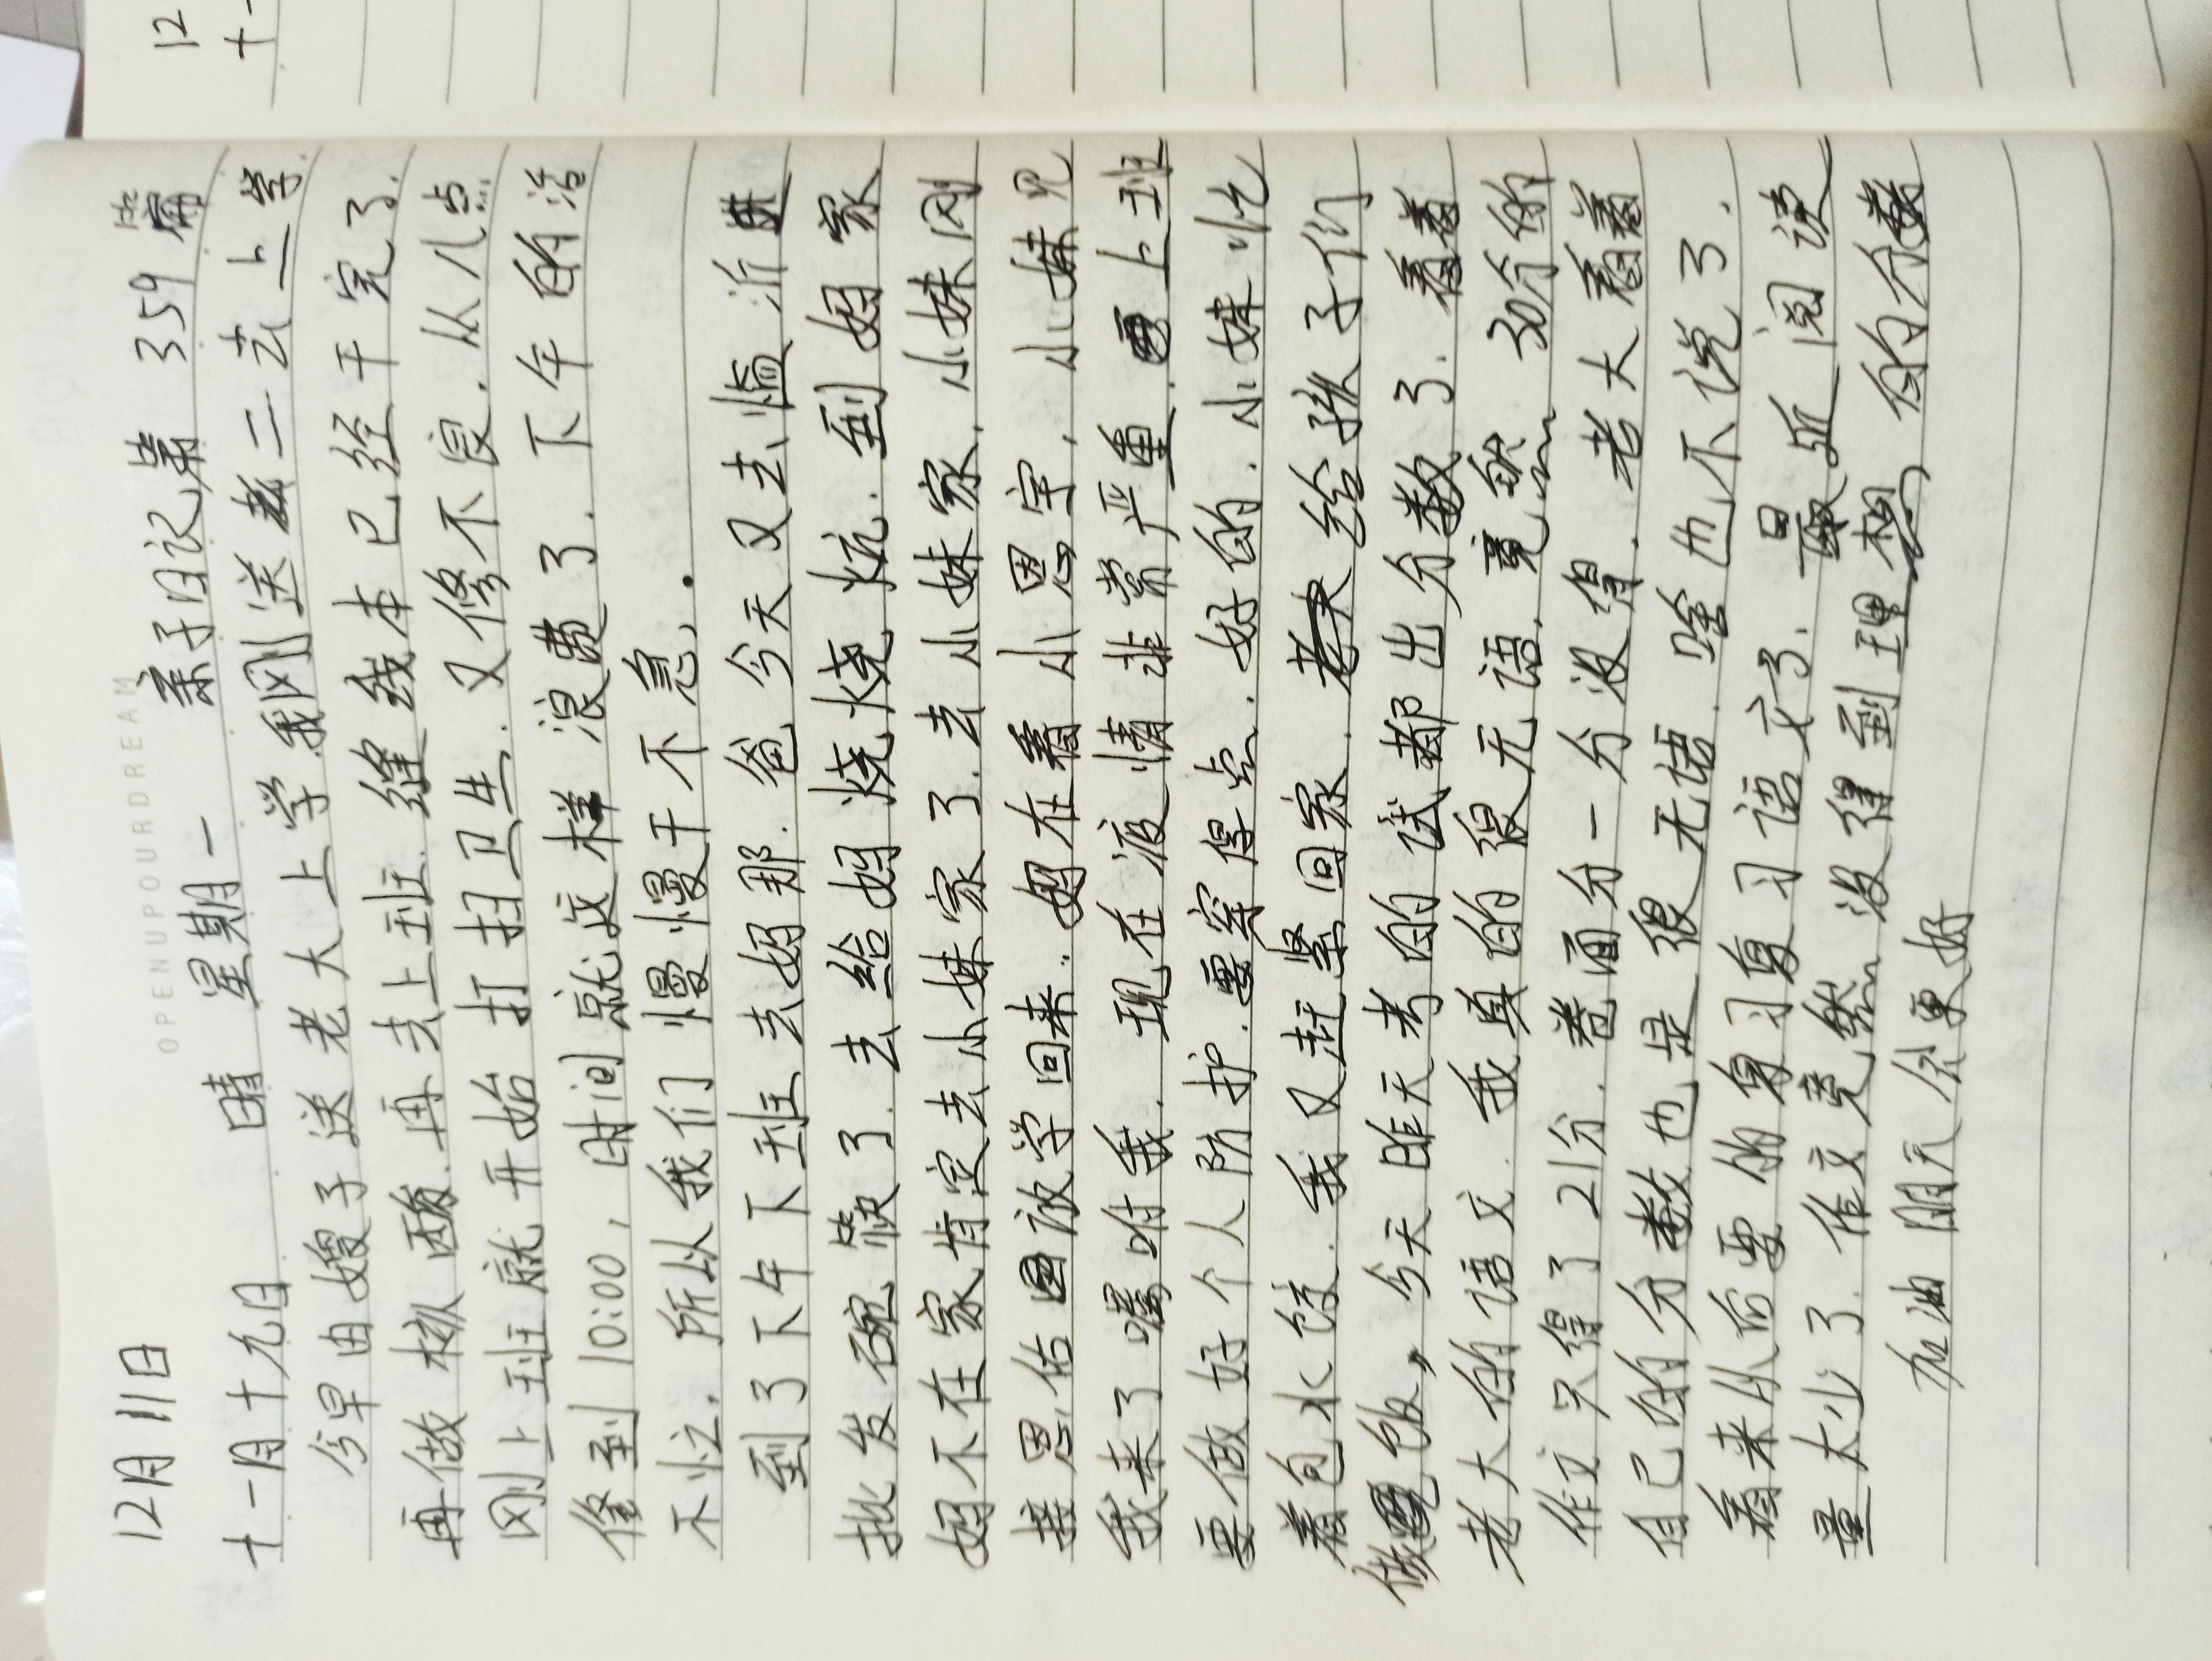 OPENUPOURDREAM
12月11日
十一月十九日 晴 星期一 亲子日记第359篇
今早由嫂子送老大上学.我刚送老二去上学.
再做核酸.再去上班.缝线本已经干完了.
刚上班就开始打扫卫生.又修不良.从八点...
修到10:00,时间就这样浪费了.下午的活
不忙.所以我们慢慢干不急.
到了下午下班去妈那.爸今天又去临沂
批发碗筷了.去给妈烧烧炕.到妈家
妈不在家肯定去小妹家了.去小妹家.小妹刚
接思佑放学回来..妈在看小思宇.小妹见
我来了嘱咐我.现在液情非常严重.上班
要做好个人防护.要穿得点.好的.小妹忙
着包水饺.我又赶紧回家.给孩子们
做饭,今天昨天考的试都出分数了.看着
老大的语文.我真的很无语.竟然30分的
作文只得了21分.卷面分一分没得.老大看着
自己的分数也是很无语.啥也不说了.
看来从后要的复习语文了.最近阅读
量太少了.作文竟然没得到理想的分数
加油明天会更好
12
十一